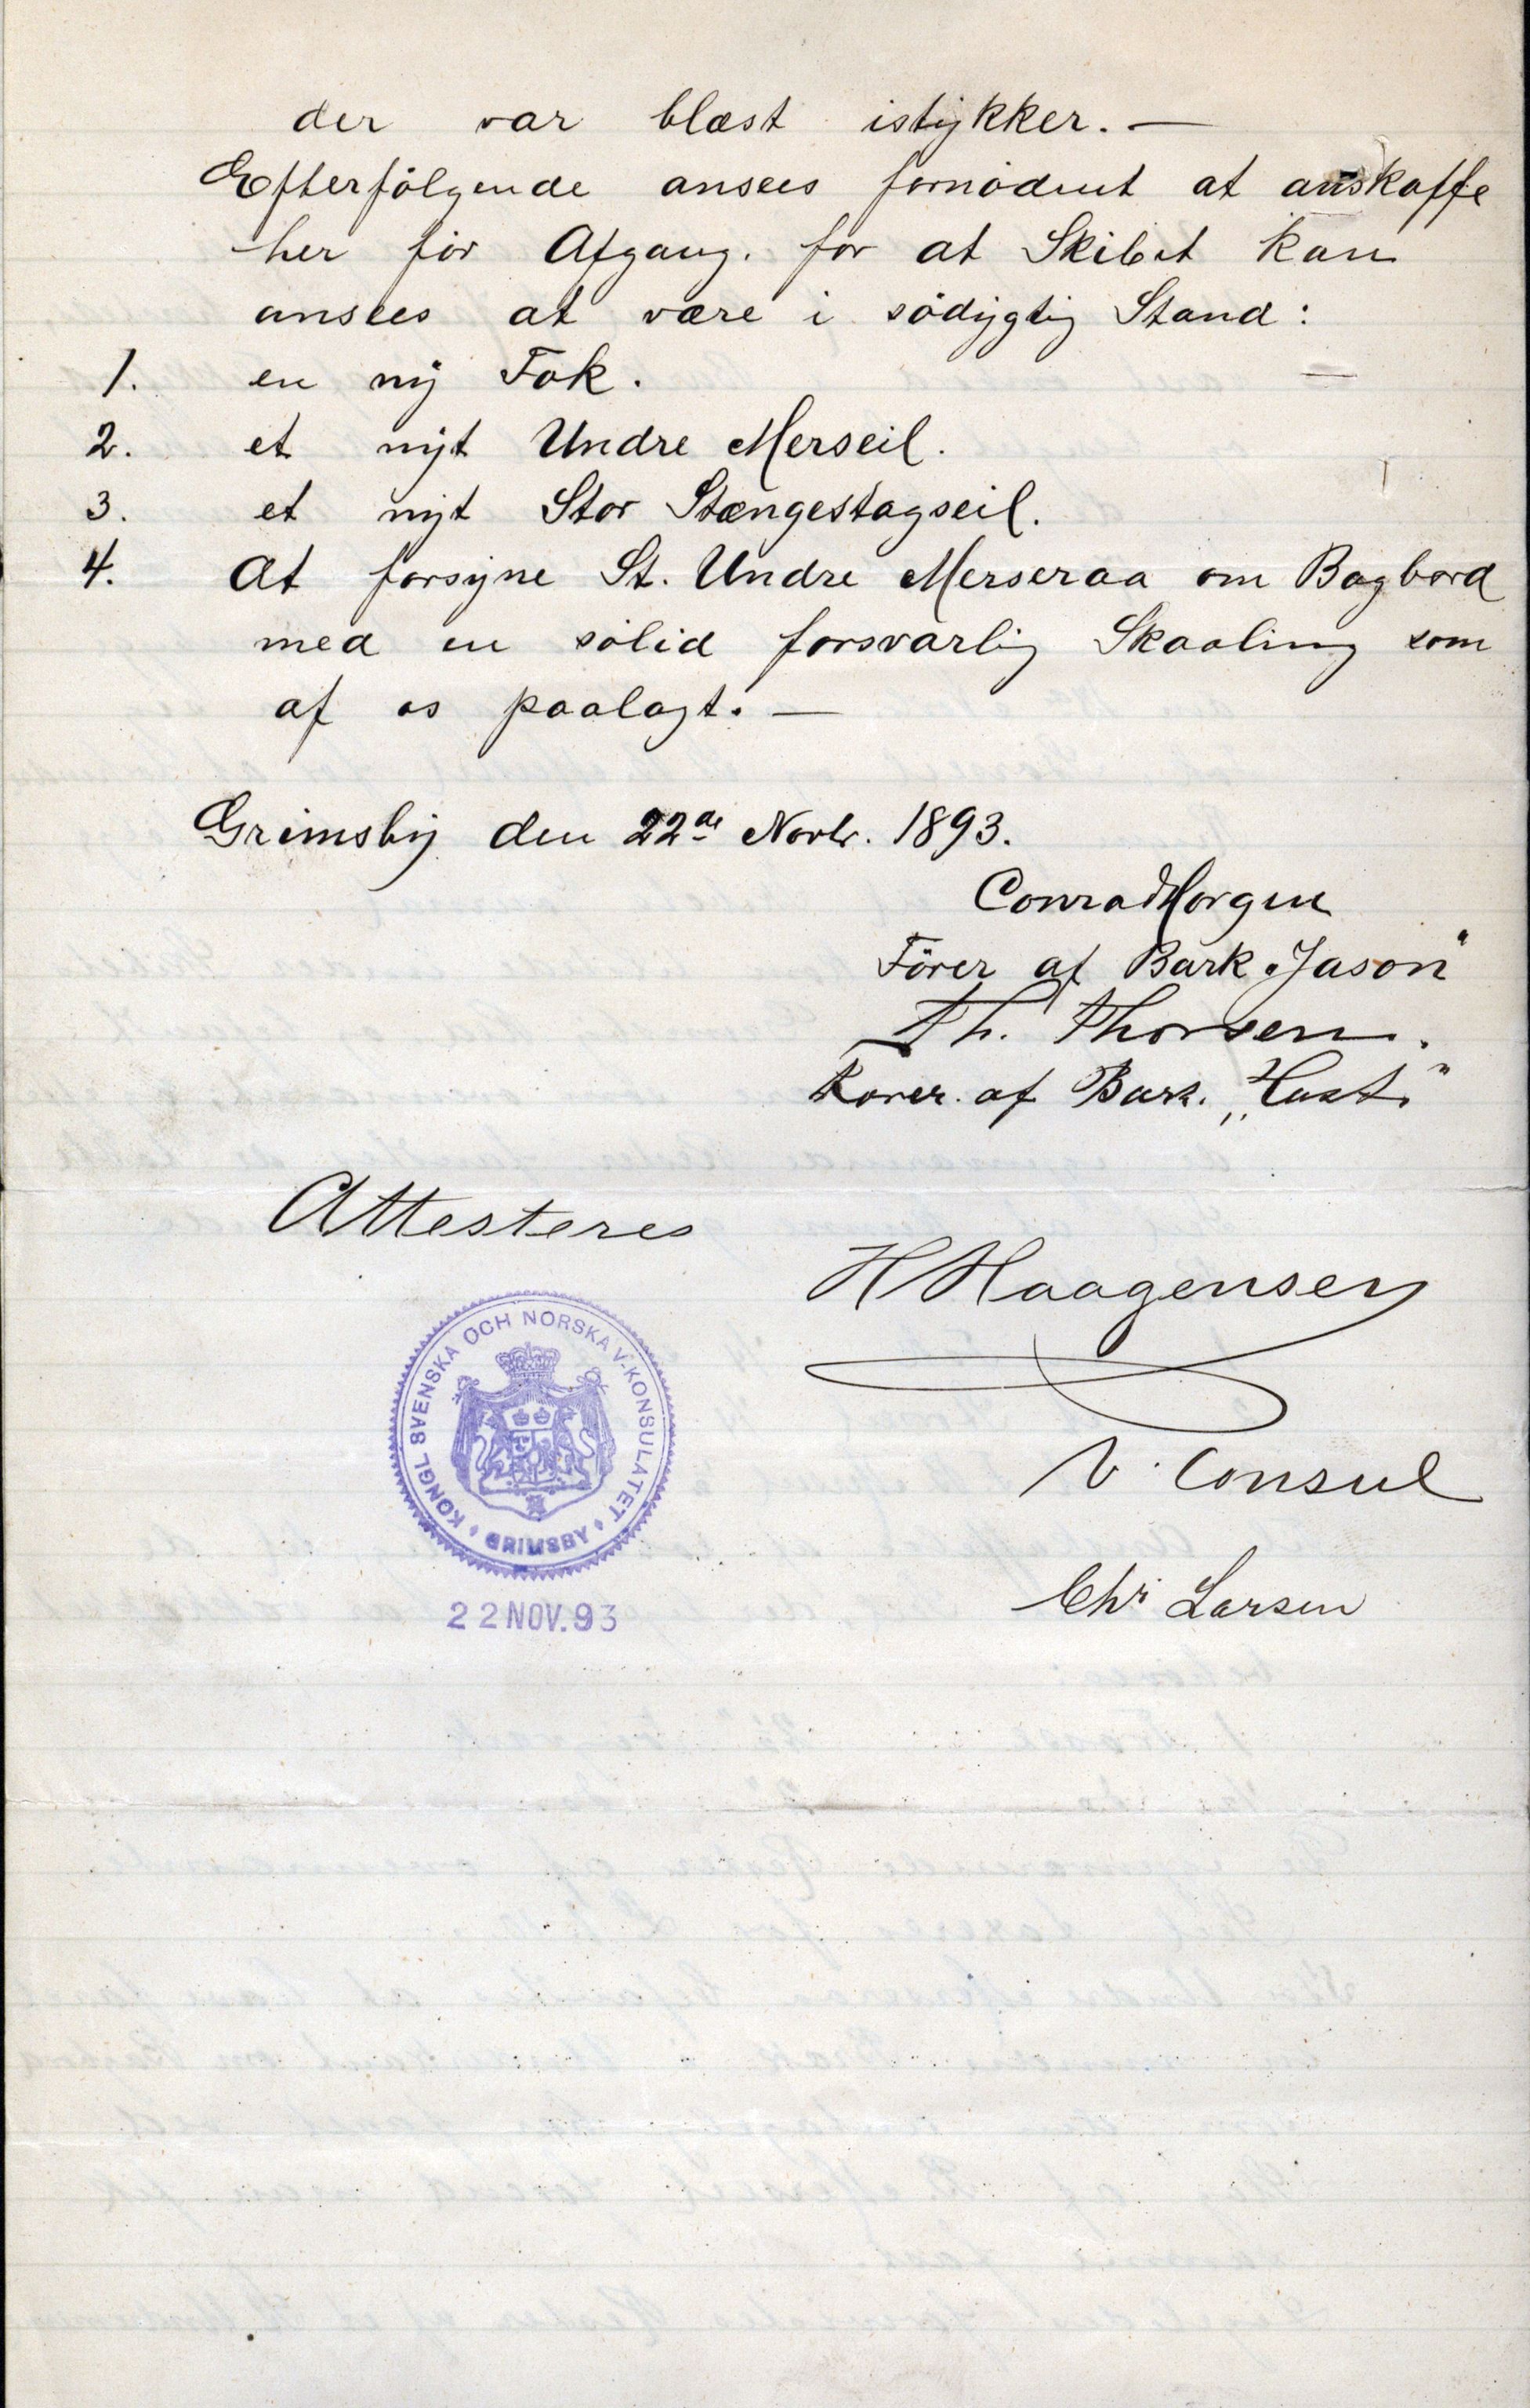 der var blæst istykker. —
Efterfølgende ansees fornødent at anskaffe
her før Afgang. for at Skibet kan
ansees at være i södygtig Stand:
1. en ny Fok.
2. et nyt Undre Merseil.
3. et nyt Stor Stængestagseil.
4. At forsyne St. Undre Merseraa om Bagbord
med en solid forsvarlig Skaaling som
af os paalagt. —
Grimsby den 22de Novbr. 1893.
Conrad Horgen
Förer af Bark "Jason"
Th. Thorsen.
Förer af Bark. „Hast"
Attesteres
H Haagensen
V. Consul
KONGL SVENSKA OCH NORSKA V-KONSULATET
GRIMSBY
22 NOV. 93
Chr Larsen